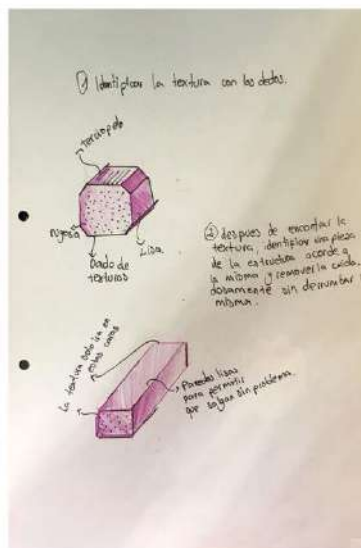 ① Identificar la textura con los dedos.
terciopelo
rugosa
Dado de
texturas
Lisa.
② despues de encontrar la
textura, identificar una pieza
de la estructura acorde a
la misma y removerla cuida
dosamente sin derrumbar la
misma.
La textura solo ira en
estas caras
Paredes lisas
para permitir
que salgan sin problema.